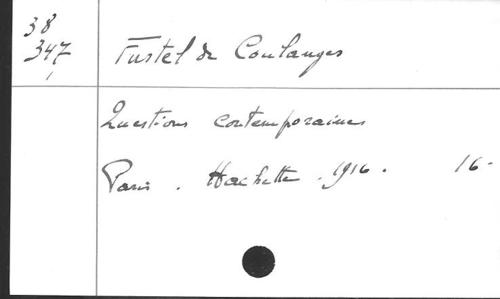 38
347
Fustel de Coulanges
Questions contemporaines
Paris. Hachette. 1916. 16-